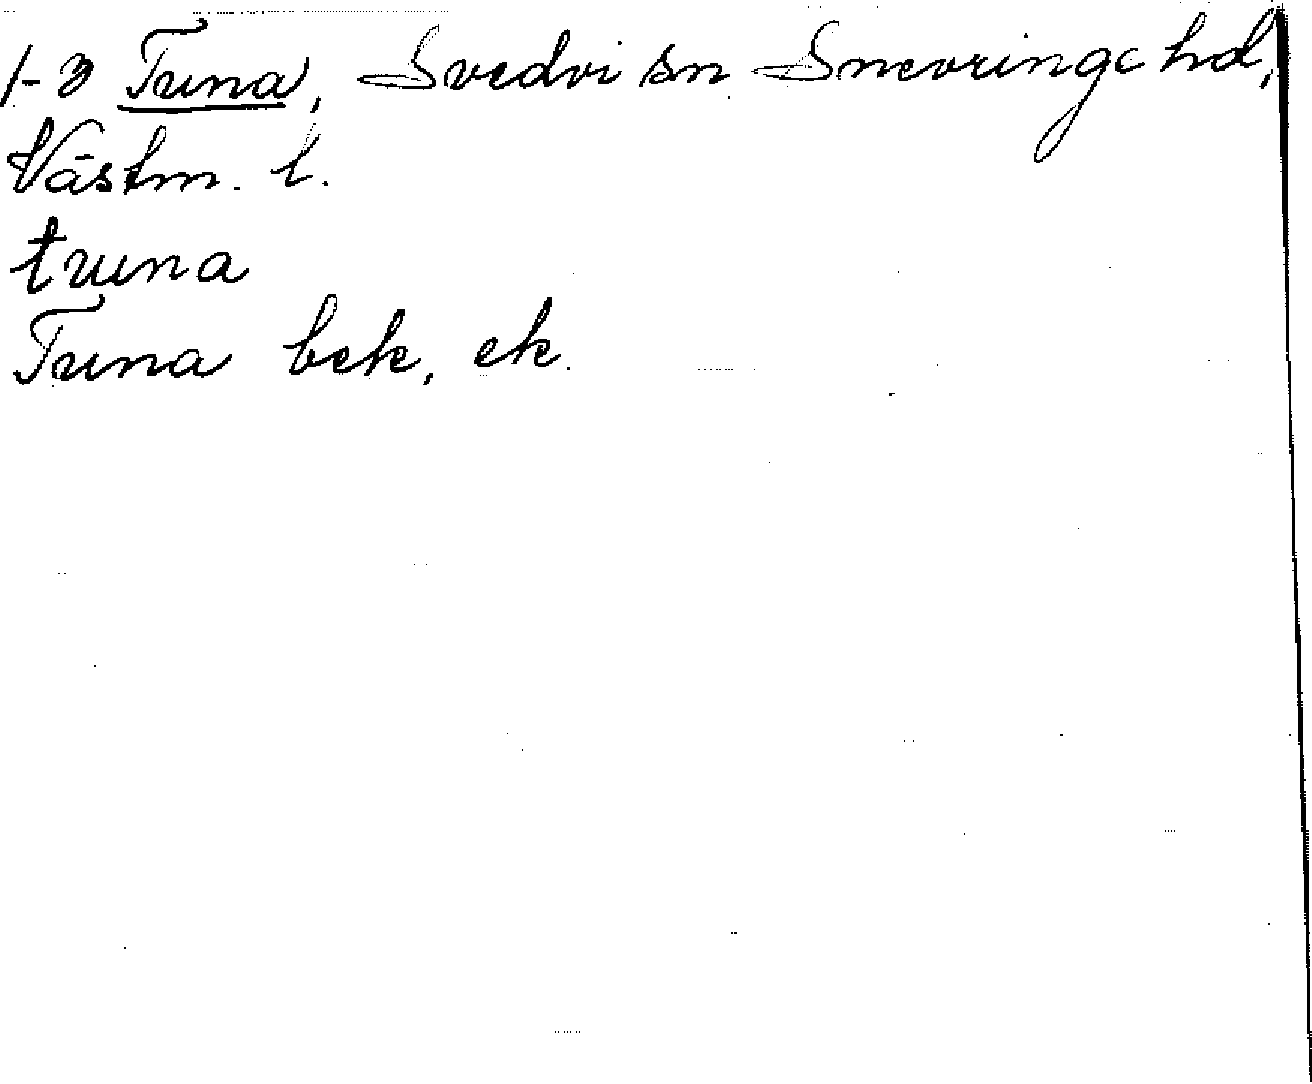 1-3 Tuna, Svedvi sn Snevringe hd,
Västm. l.
tuna
Tuna bek, ek.